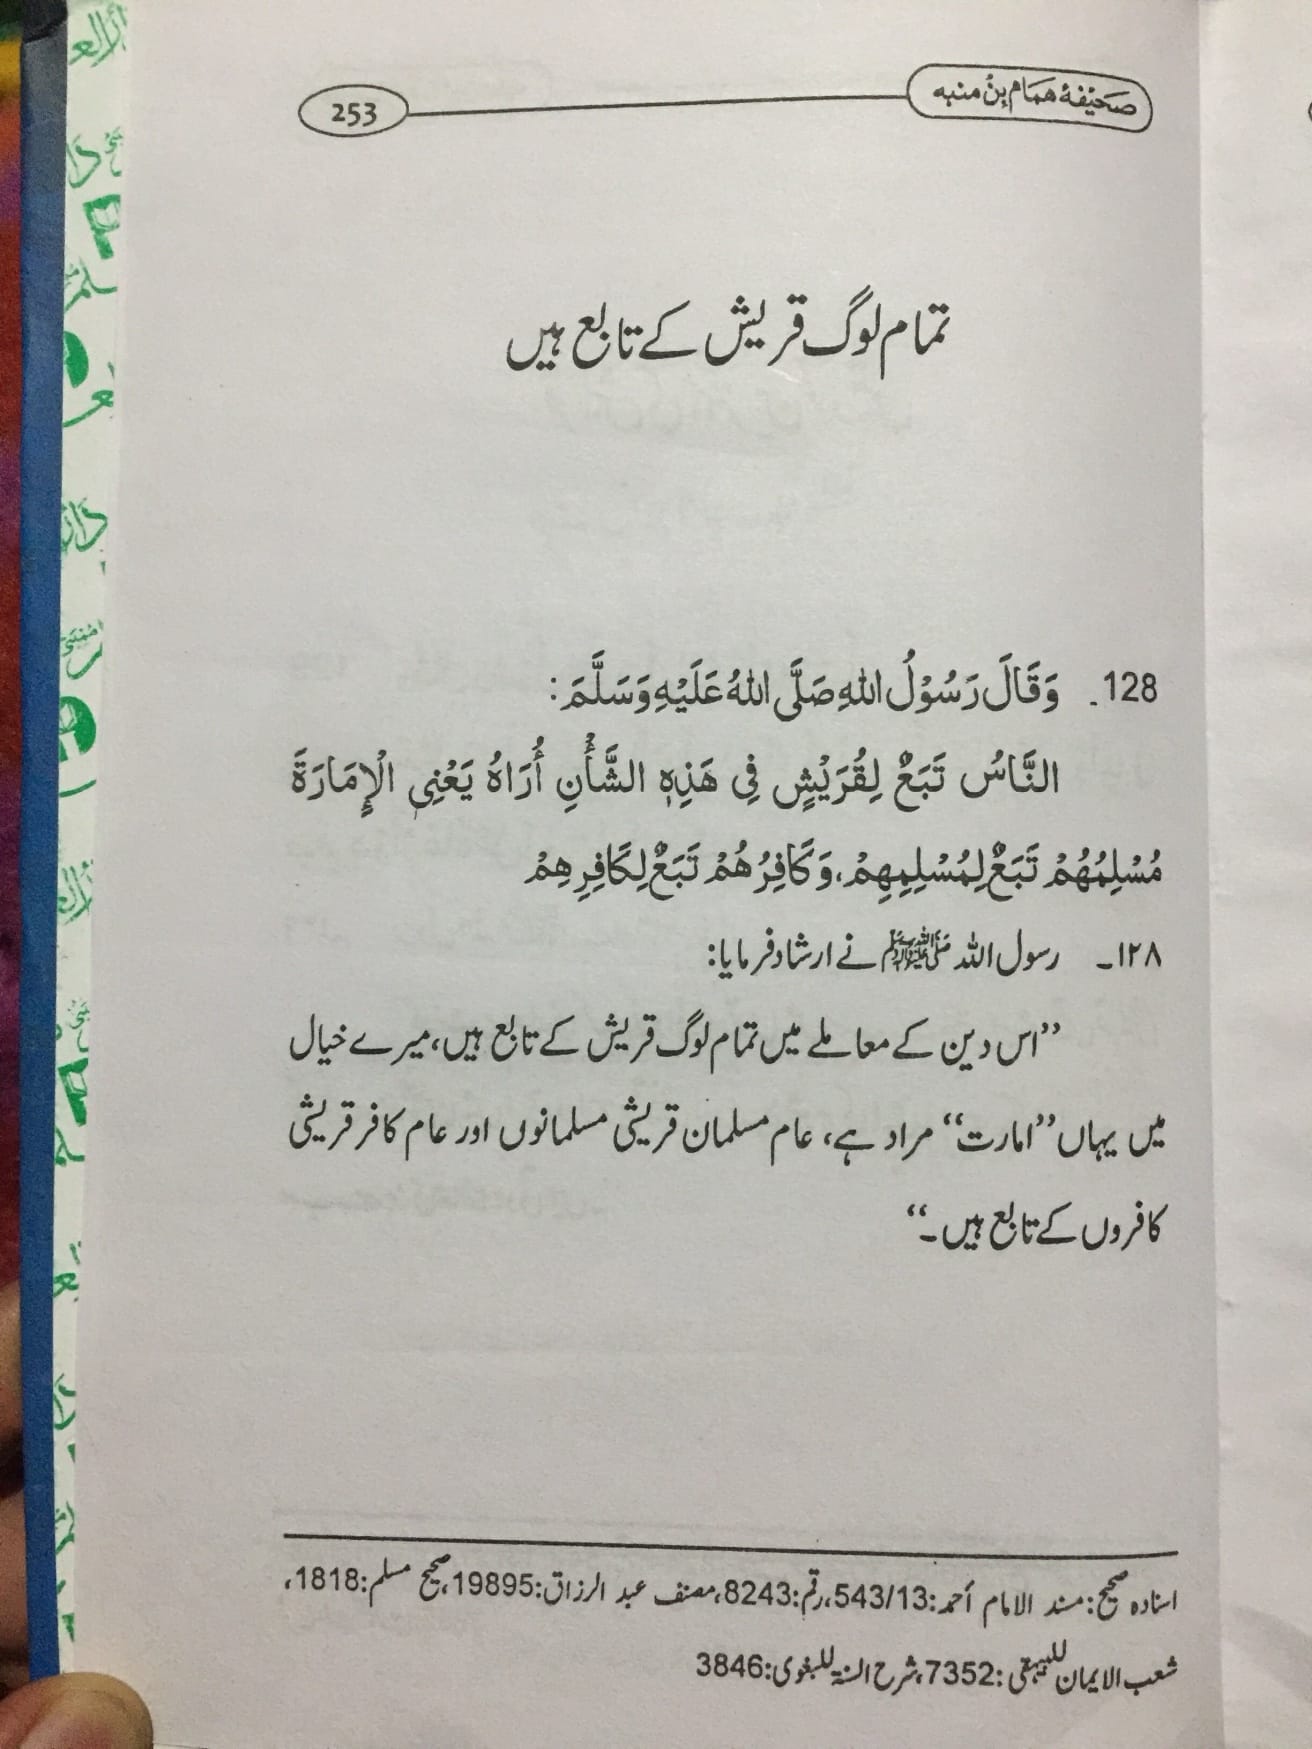 صحیفۂ ھمام بن منبہ
253
تمام لوگ قریش کے تابع ہیں
128۔ وَقَالَ رَسُوْلُ اللهِ صَلَّى اللهُ عَلَيْهِ وَسَلَّمَ:
النَّاسُ تَبَعٌ لِقُرَيْشٍ فِي هَذِهِ الشَّأْنِ أُرَاهُ يَعْنِي الْإِمَارَةَ
مُسْلِمُهُمْ تَبَعٌ لِمُسْلِمِهِمْ، وَكَافِرُهُمْ تَبَعٌ لِكَافِرِهِمْ
۱۲۸۔ رسول اللہ ﷺ نے ارشاد فرمایا:
’’اس دین کے معاملے میں تمام لوگ قریش کے تابع ہیں، میرے خیال
میں یہاں ’’امارت‘‘ مراد ہے، عام مسلمان قریشی مسلمانوں اور عام کافر قریشی
کافروں کے تابع ہیں۔‘‘
اسنادہ صحیح: مسند الامام أحمد: 543/13، رقم: 8243، مصنف عبد الرزاق: 19895، صحیح مسلم: 1818،
شعب الایمان للبیہقی: 7352، شرح السنۃ للبغوی: 3846